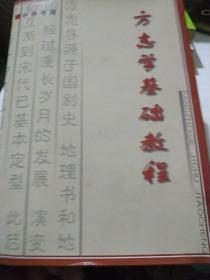 方志学基础教程
JICHU JIAOCHENG
方志导源于国别史 地理书和地
经过漫长岁月的发展 演变
渐到宋代已基本定型 此后